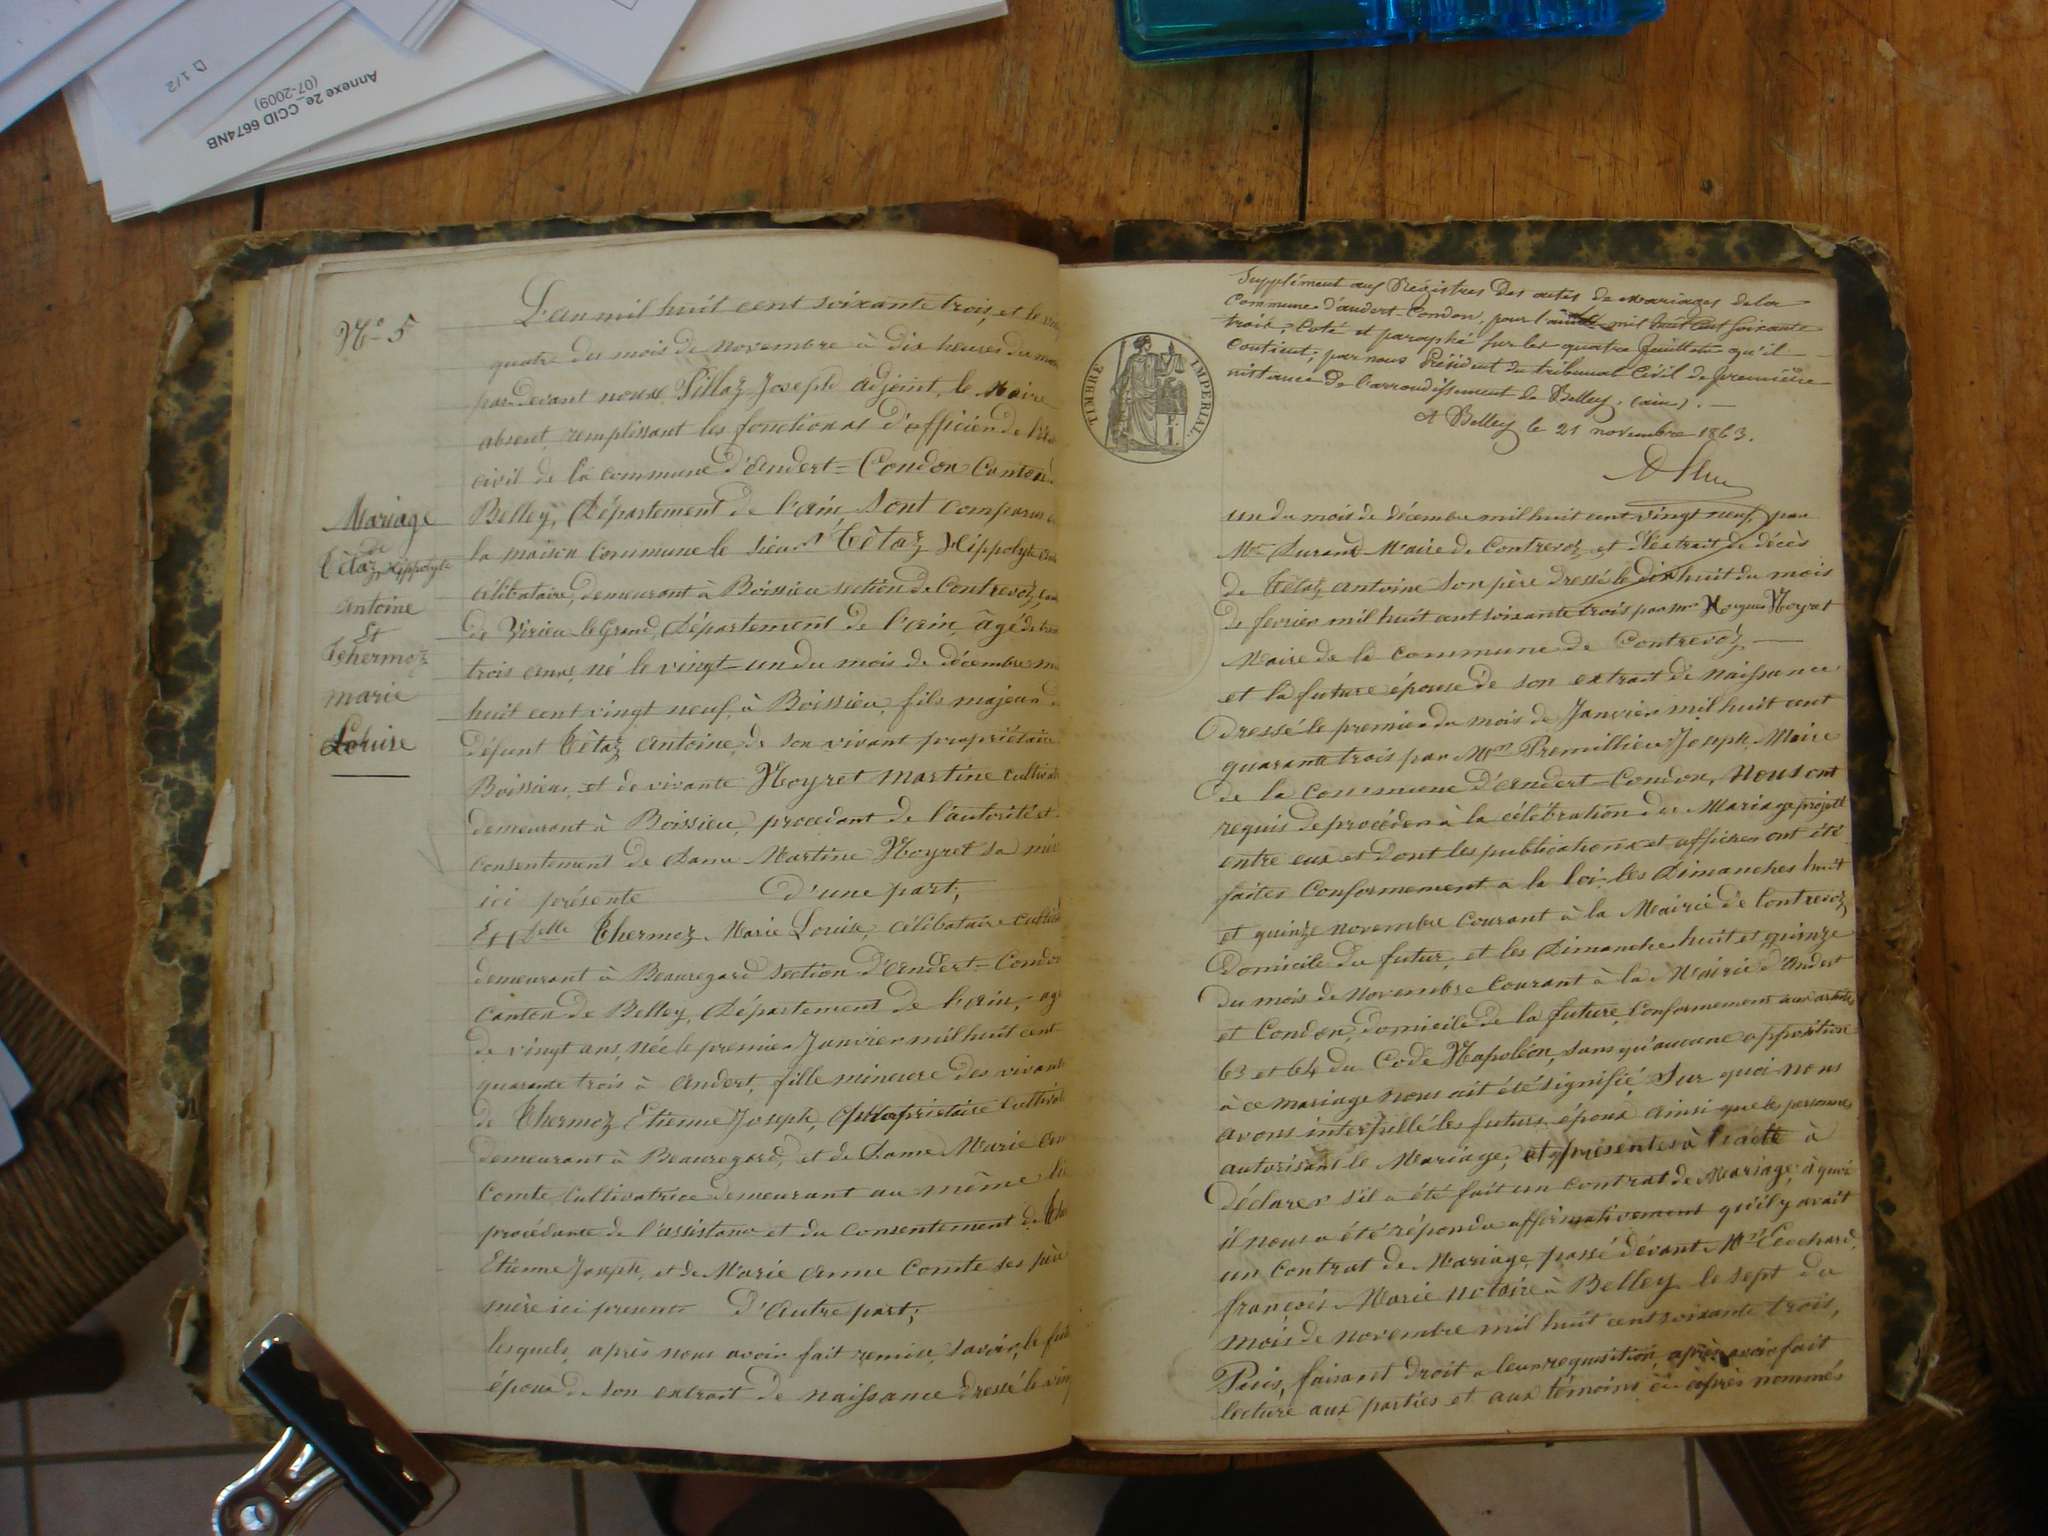 D 1/2
Annexe 2e_CCID 6674NB
(07-2009)
N° 5
Mariage
de
Tétaz Hippolyte
Antoine
Et
Thermoz
marie
Louise
L'an mil huit cent soixante trois, et le
quatre du mois de novembre à dix heures du
par devant nous Pillaz Joseph adjoint, le Maire
absent, remplissant les fonctions d'officier de
civil de la commune d'Andert=Condon Canton
Belley, Département de l'ain Sont comparus
la maison commune le sieur Tétaz Hippolyte
célibataire, demeurant à Boissieu section de Contrevoz,
de Virieu le Grand, Département de l'ain, âgé de
trois ans, né le vingt-un du mois de décembre
huit cent vingt neuf, à Boissieu, fils majeur
défunt Tétaz Antoine, de son vivant propriétaire
Boissieu, et de vivante Noyret Martine
demeurant à Boissieu, procédant de l'autorité et
consentement de Dame Martine Noyret sa
ici présente d'une part,
Et Delle Thermoz Marie Louise, célibataire
demeurant à Beauregard section d'Andert=Condon
Canton de Belley, Département de l'ain,
de vingt ans, née le premier Janvier mil huit cent
quarante trois à Andert, fille mineure des vivants
de Thermoz Etienne Joseph, propriétaire
demeurant à Beauregard, et de Dame Marie
Comte cultivatrice demeurant au même
procédante de l'assistance et du consentement de
Etienne Joseph, et de Marie Anne Comte ses
mère ici présents d'Autre part;
lesquels, après nous avoir fait remise, savoir, le
époux de son extrait de naissance dressé le
Supplément aux Régistres Des actes de mariages de la
Commune d'andert-Condon, pour l'année mil huit cent soixante
trois, Coté et paraphé sur les quatre feuillets qu'il
contient; par nous Président du tribunal Civil de première
instance de l'arrondissement de Belley, (ain).
A Belley le 21 novembre 1863.
TIMBRE IMPERIAL.
un du mois de décembre mil huit cent vingt neuf, par
Mr Durand Maire de Contrevoz et d'extrait de décès
de Tétaz Antoine son père dressé le dix huit du mois
de fevrier mil huit cent soixante trois par Mr Noyret
Maire de la commune de Contrevoz,
et la future épouse de son extrait de naissance
dressé le premier du mois de Janvier mil huit cent
quarante trois par Mr Premillieu Joseph, Maire
de la commune d'Andert-Condon, Nous ont
requis de procéder à la célébration du Mariage projeté
entre eux et dont les publications et affiches ont été
faites Conformement à la loi, les Dimanches huit
et quinze novembre courant à la Mairie de Contrevoz
Domicile du futur, et les Dimanche huit et quinze
du mois de Novembre Courant à la Mairie d'Andert
et Condon, domicile de la future, Conformement aux articles
63 et 64 du Code Napoléon, sans qu'aucune opposition
à ce mariage nous ait été signifié, Sur quoi nous
avons interpellé les futurs époux ainsi que les personnes
autorisant le Mariage, et présentes à l'acte à
déclarer s'il a été fait un contrat de Mariage, à quoi
il nous a été répondu affirmativement qu'il y avait
un contrat de Mariage passé devant Mr
françois Marie notaire à Belley le sept du
mois de novembre mil huit cent soixante trois,
Puis, faisant droit a leur requisition, après avoir fait
lecture aux parties et aux témoins ci-après nommés